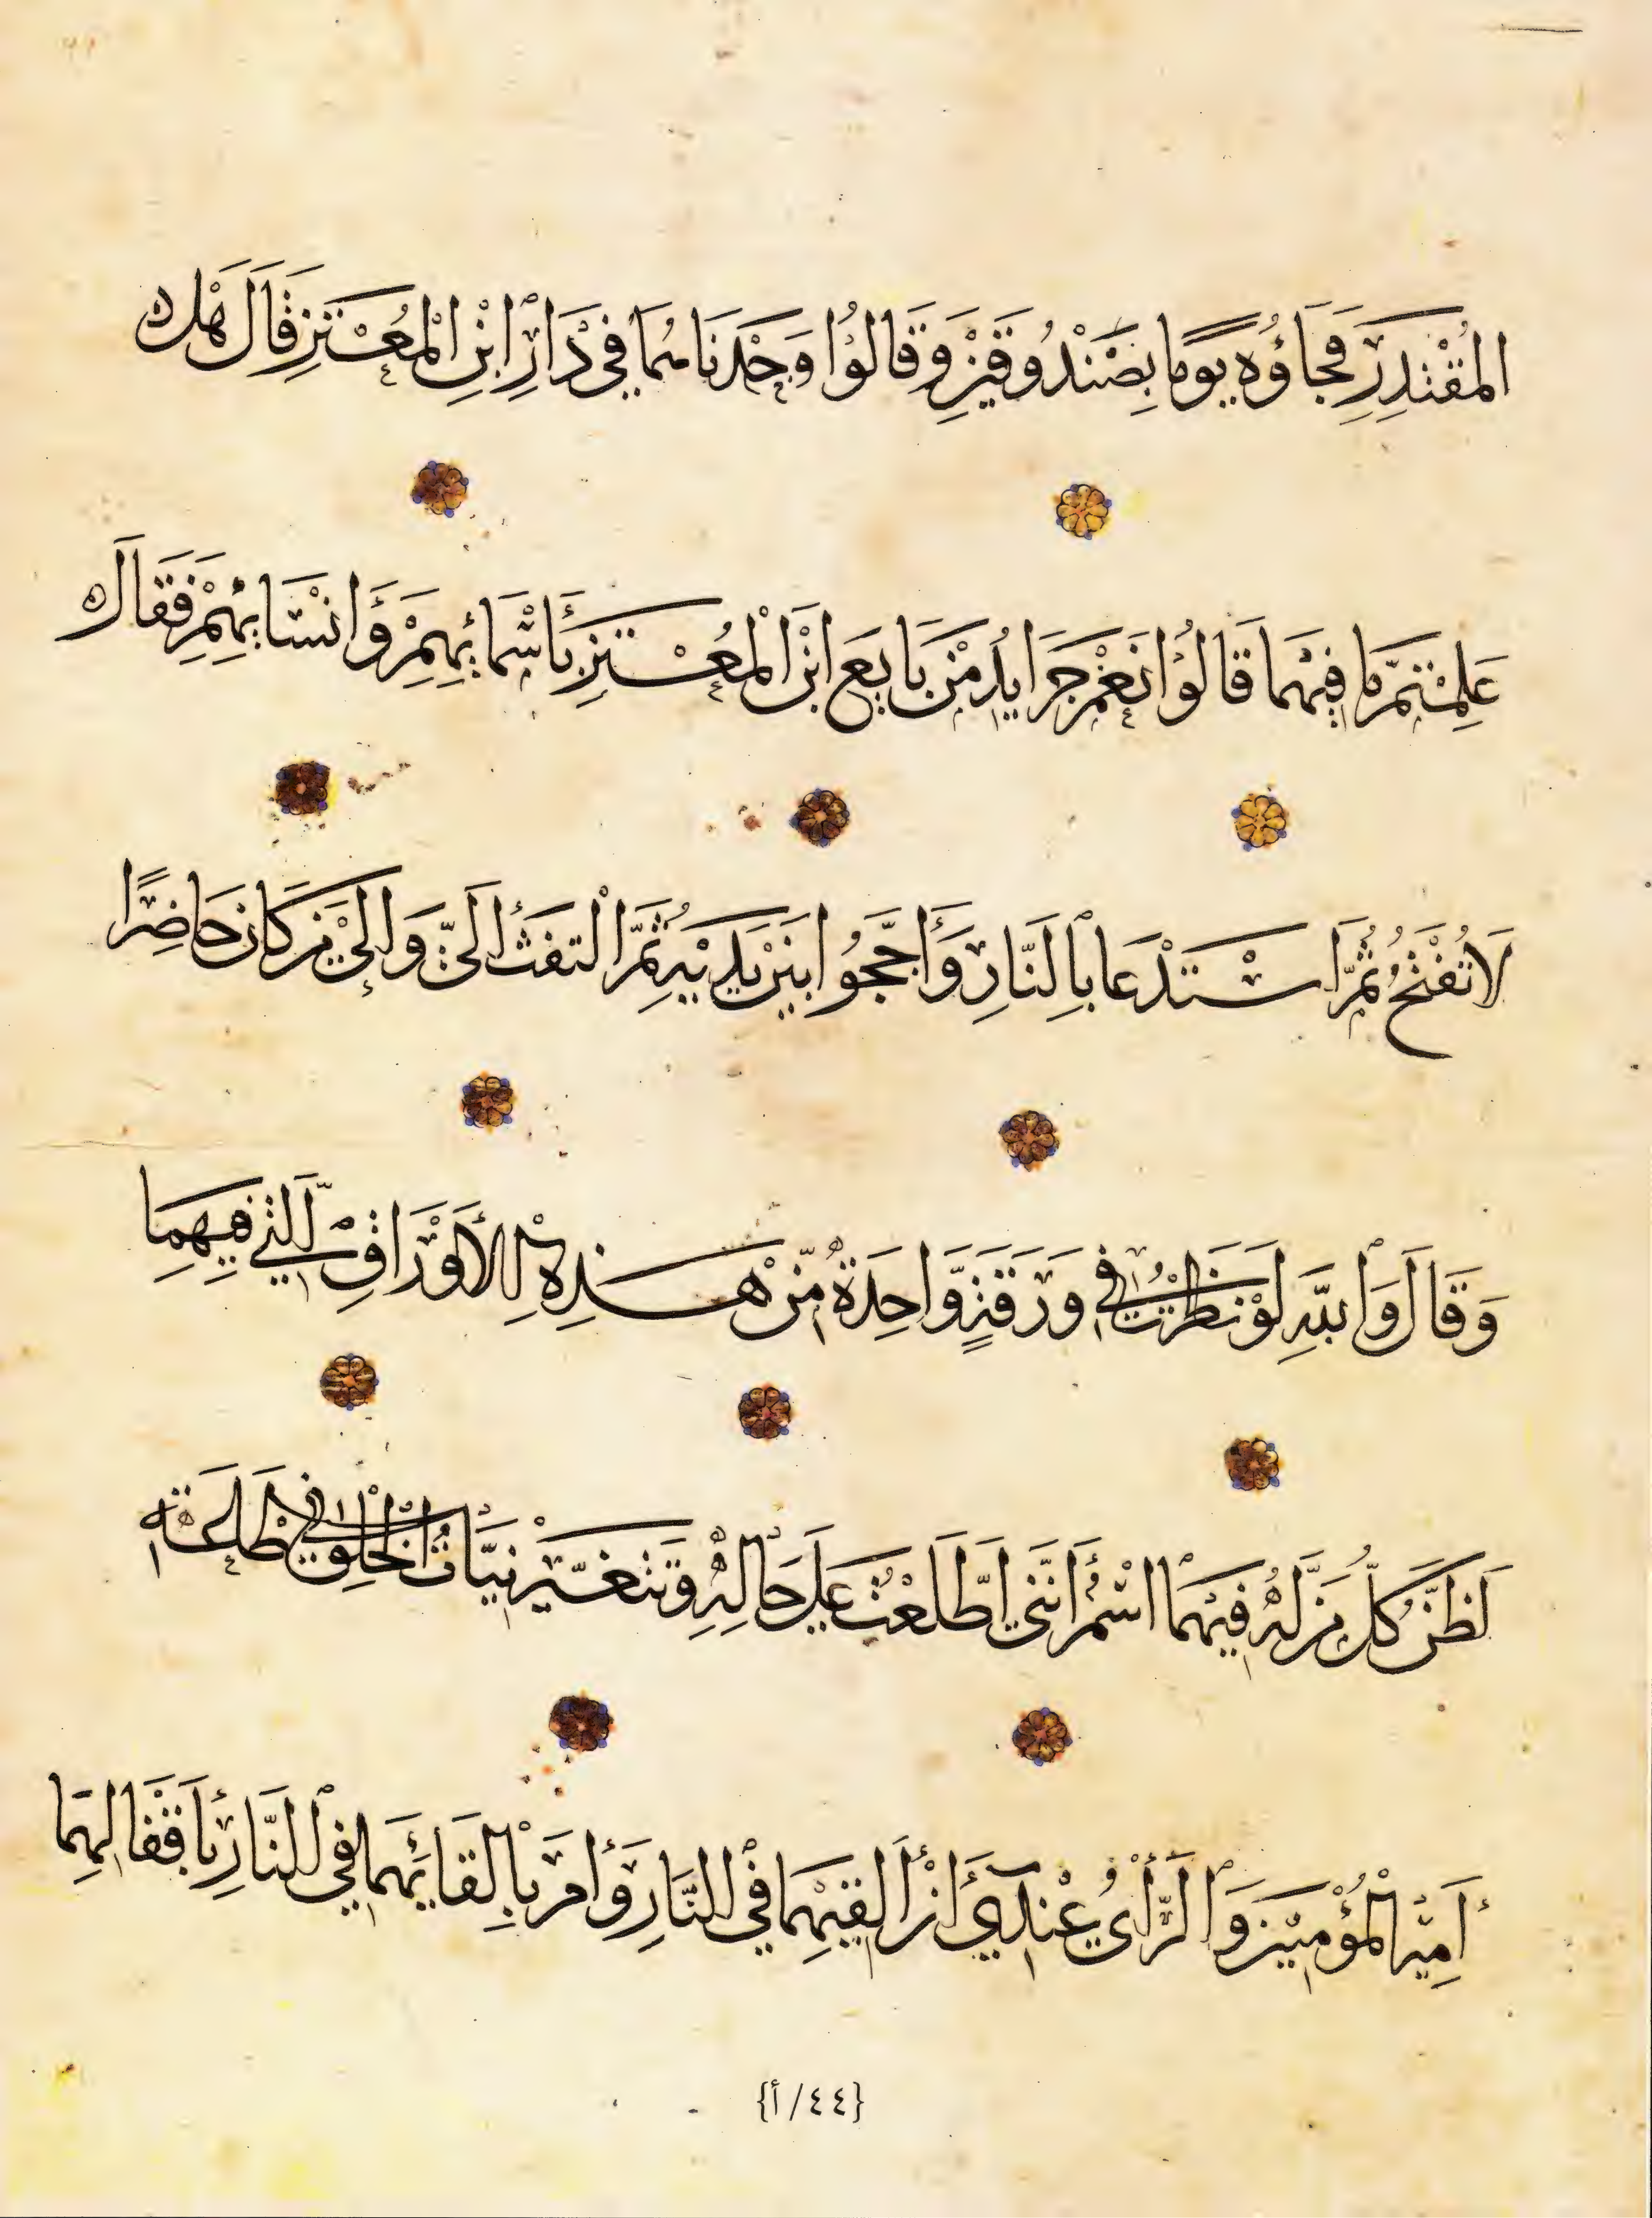 المُقْتَدِرِ فَجَاؤُه يوما بِصَنْدُوقَيْنِ وَقَالُوْا وَجَدْنَاهُمَا فِي دَارِ ابْنِ الْمُعْتَزِ فَقَالَ هَلْ
عَلِمْتُمْ مَّا فِيْهِمَا قَالُوْا نَعَمْ جَرَايِدُ مَنْ بَايَعَ ابْنَ الْمُعْتَزِ بِأَسْمَائِهِمْ وَأَنْسَابِهِمْ فَقَالَ
لَا تُفْتَحُ ثُمَّ اسْتَدْعَا بِالنَّارِ وَأَجَّجُوا بَيْنَ يَدَيْهِ ثُمَّ الْتفتَ إلَىَّ وَإلى مَنْ كَانَ حَاضِرًا
وَقَالَ وَاللّهِ لَوْ نَظَرْتُ فِي وَرَقَةٍ وَّاحِدَةٍ مِّنْ هَذِهِ الْأَوْرَاقِ الَّتِي فِيهِمَا
لَظَنَّ كُلُّ مَنْ لَهُ فِيْهِمَا اسْمٌ أَنَّنِي اطَّلَعْتُ عَلَى حَالِهِ وَتَتَغَيَّرُ نِيَّاتُ الْخَلْقِ فِي طَاعَةِ
أَمِيْرِ الْمُؤْمِنِيْنَ وَالرَّأْىُ عِنْدِي أَنْ أُلْقِيَهُمَا فِي النَّارِ وَأَمَرَ بِإِلْقَائِهِمَا فِي النَّارِ بِأَقْفَالِهِمَا
{٤٤/أ}